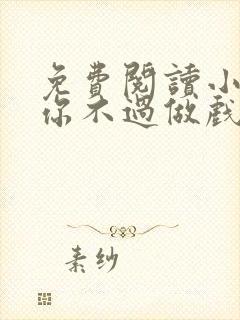 免費閱讀小
你不過做戲
素紗